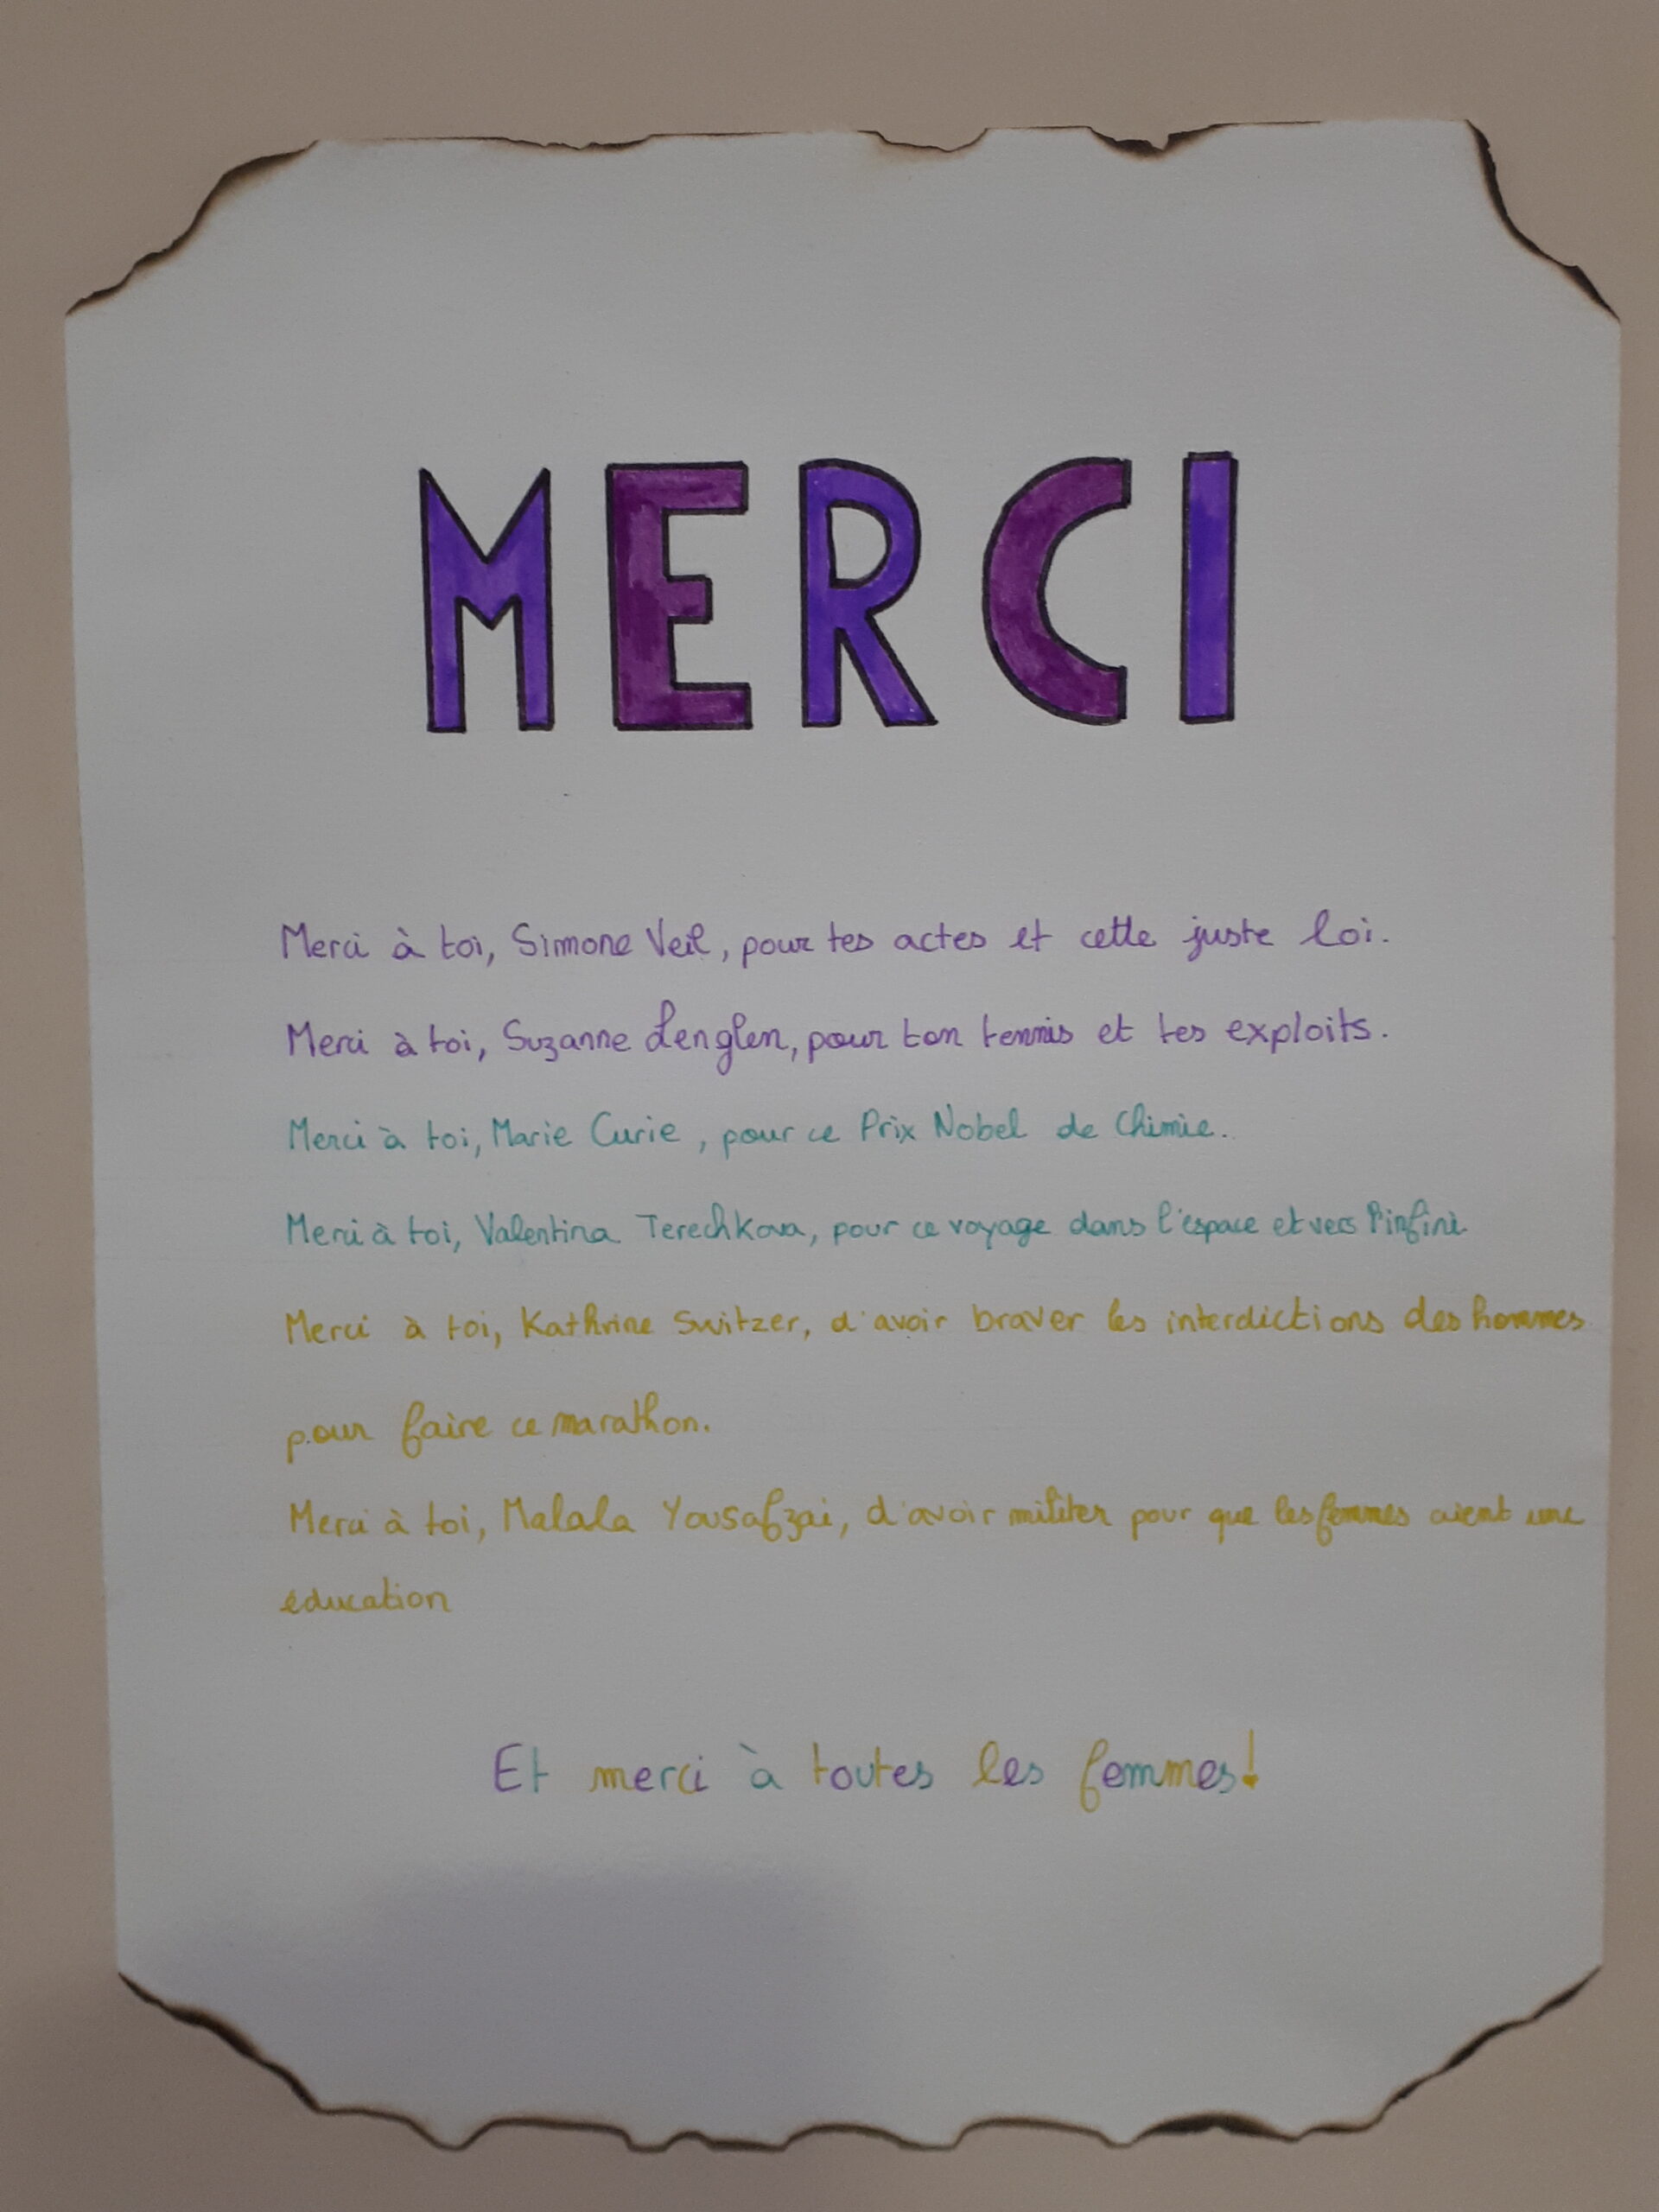 MERCI
Merci à toi, Simone Veil, pour tes actes et cette juste loi.
Merci à toi, Suzanne Lenglen, pour ton tennis et tes exploits.
Merci à toi, Marie Curie, pour ce Prix Nobel de Chimie.
Merci à toi, Valentina Terechkova, pour ce voyage dans l'espace et vers l'infini.
Merci à toi, Kathrine Switzer, d'avoir braver les interdictions des hommes
pour faire ce marathon.
Merci à toi, Malala Yousafzai, d'avoir militer pour que les femmes aient une
éducation
Et merci à toutes les femmes!